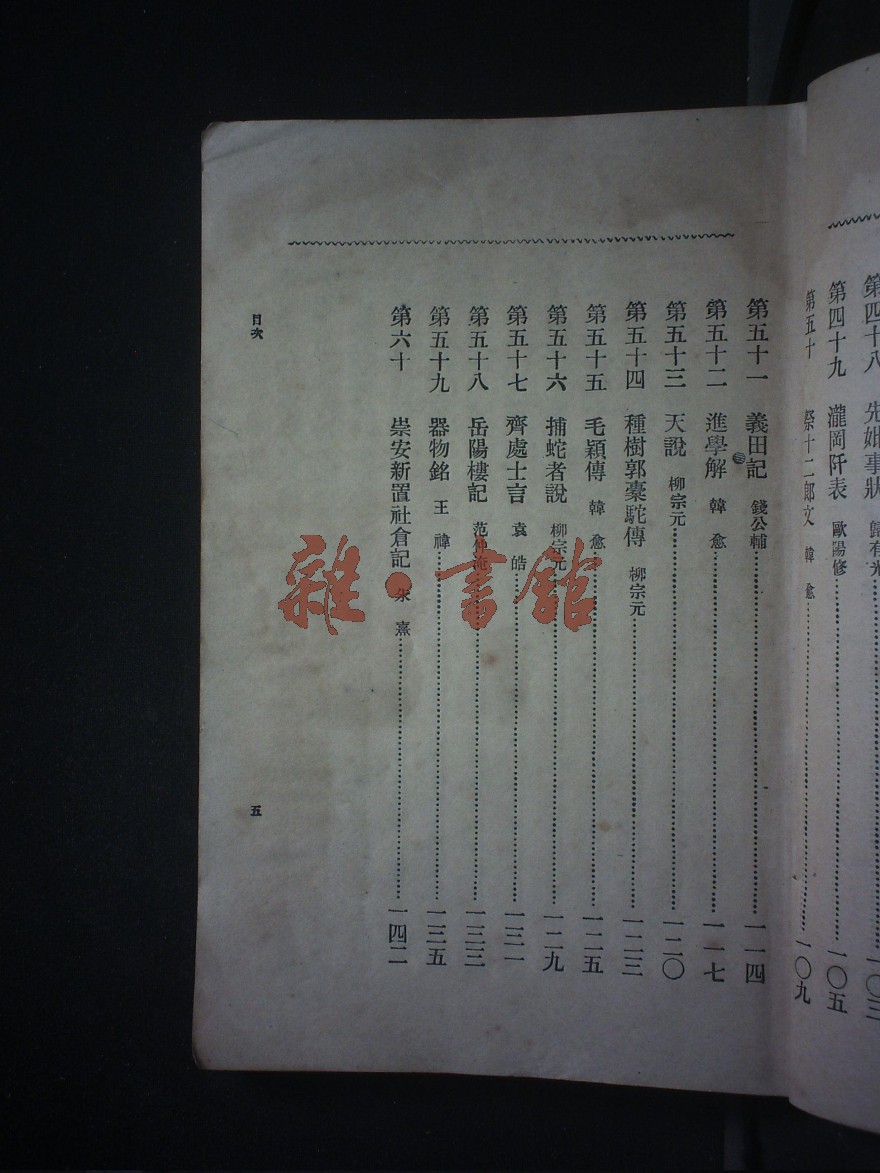 第四十八 先妣事狀 歸有光 一〇三
第四十九 瀧岡阡表 歐陽修 一〇五
第五十 祭十二郎文 韓愈 一〇九
第五十一 義田記 錢公輔 一一四
第五十二 進學解 韓愈 一一七
第五十三 天說 柳宗元 一二〇
第五十四 種樹郭橐駝傳 柳宗元 一二三
第五十五 毛穎傳 韓愈 一二五
第五十六 捕蛇者說 柳宗元 一二九
第五十七 齊處士言 袁皓 一三一
第五十八 岳陽樓記 范仲淹 一三三
第五十九 器物銘 王禕 一三五
第六十 崇安新置社倉記 朱熹 一四二
目次
五
雜·書館